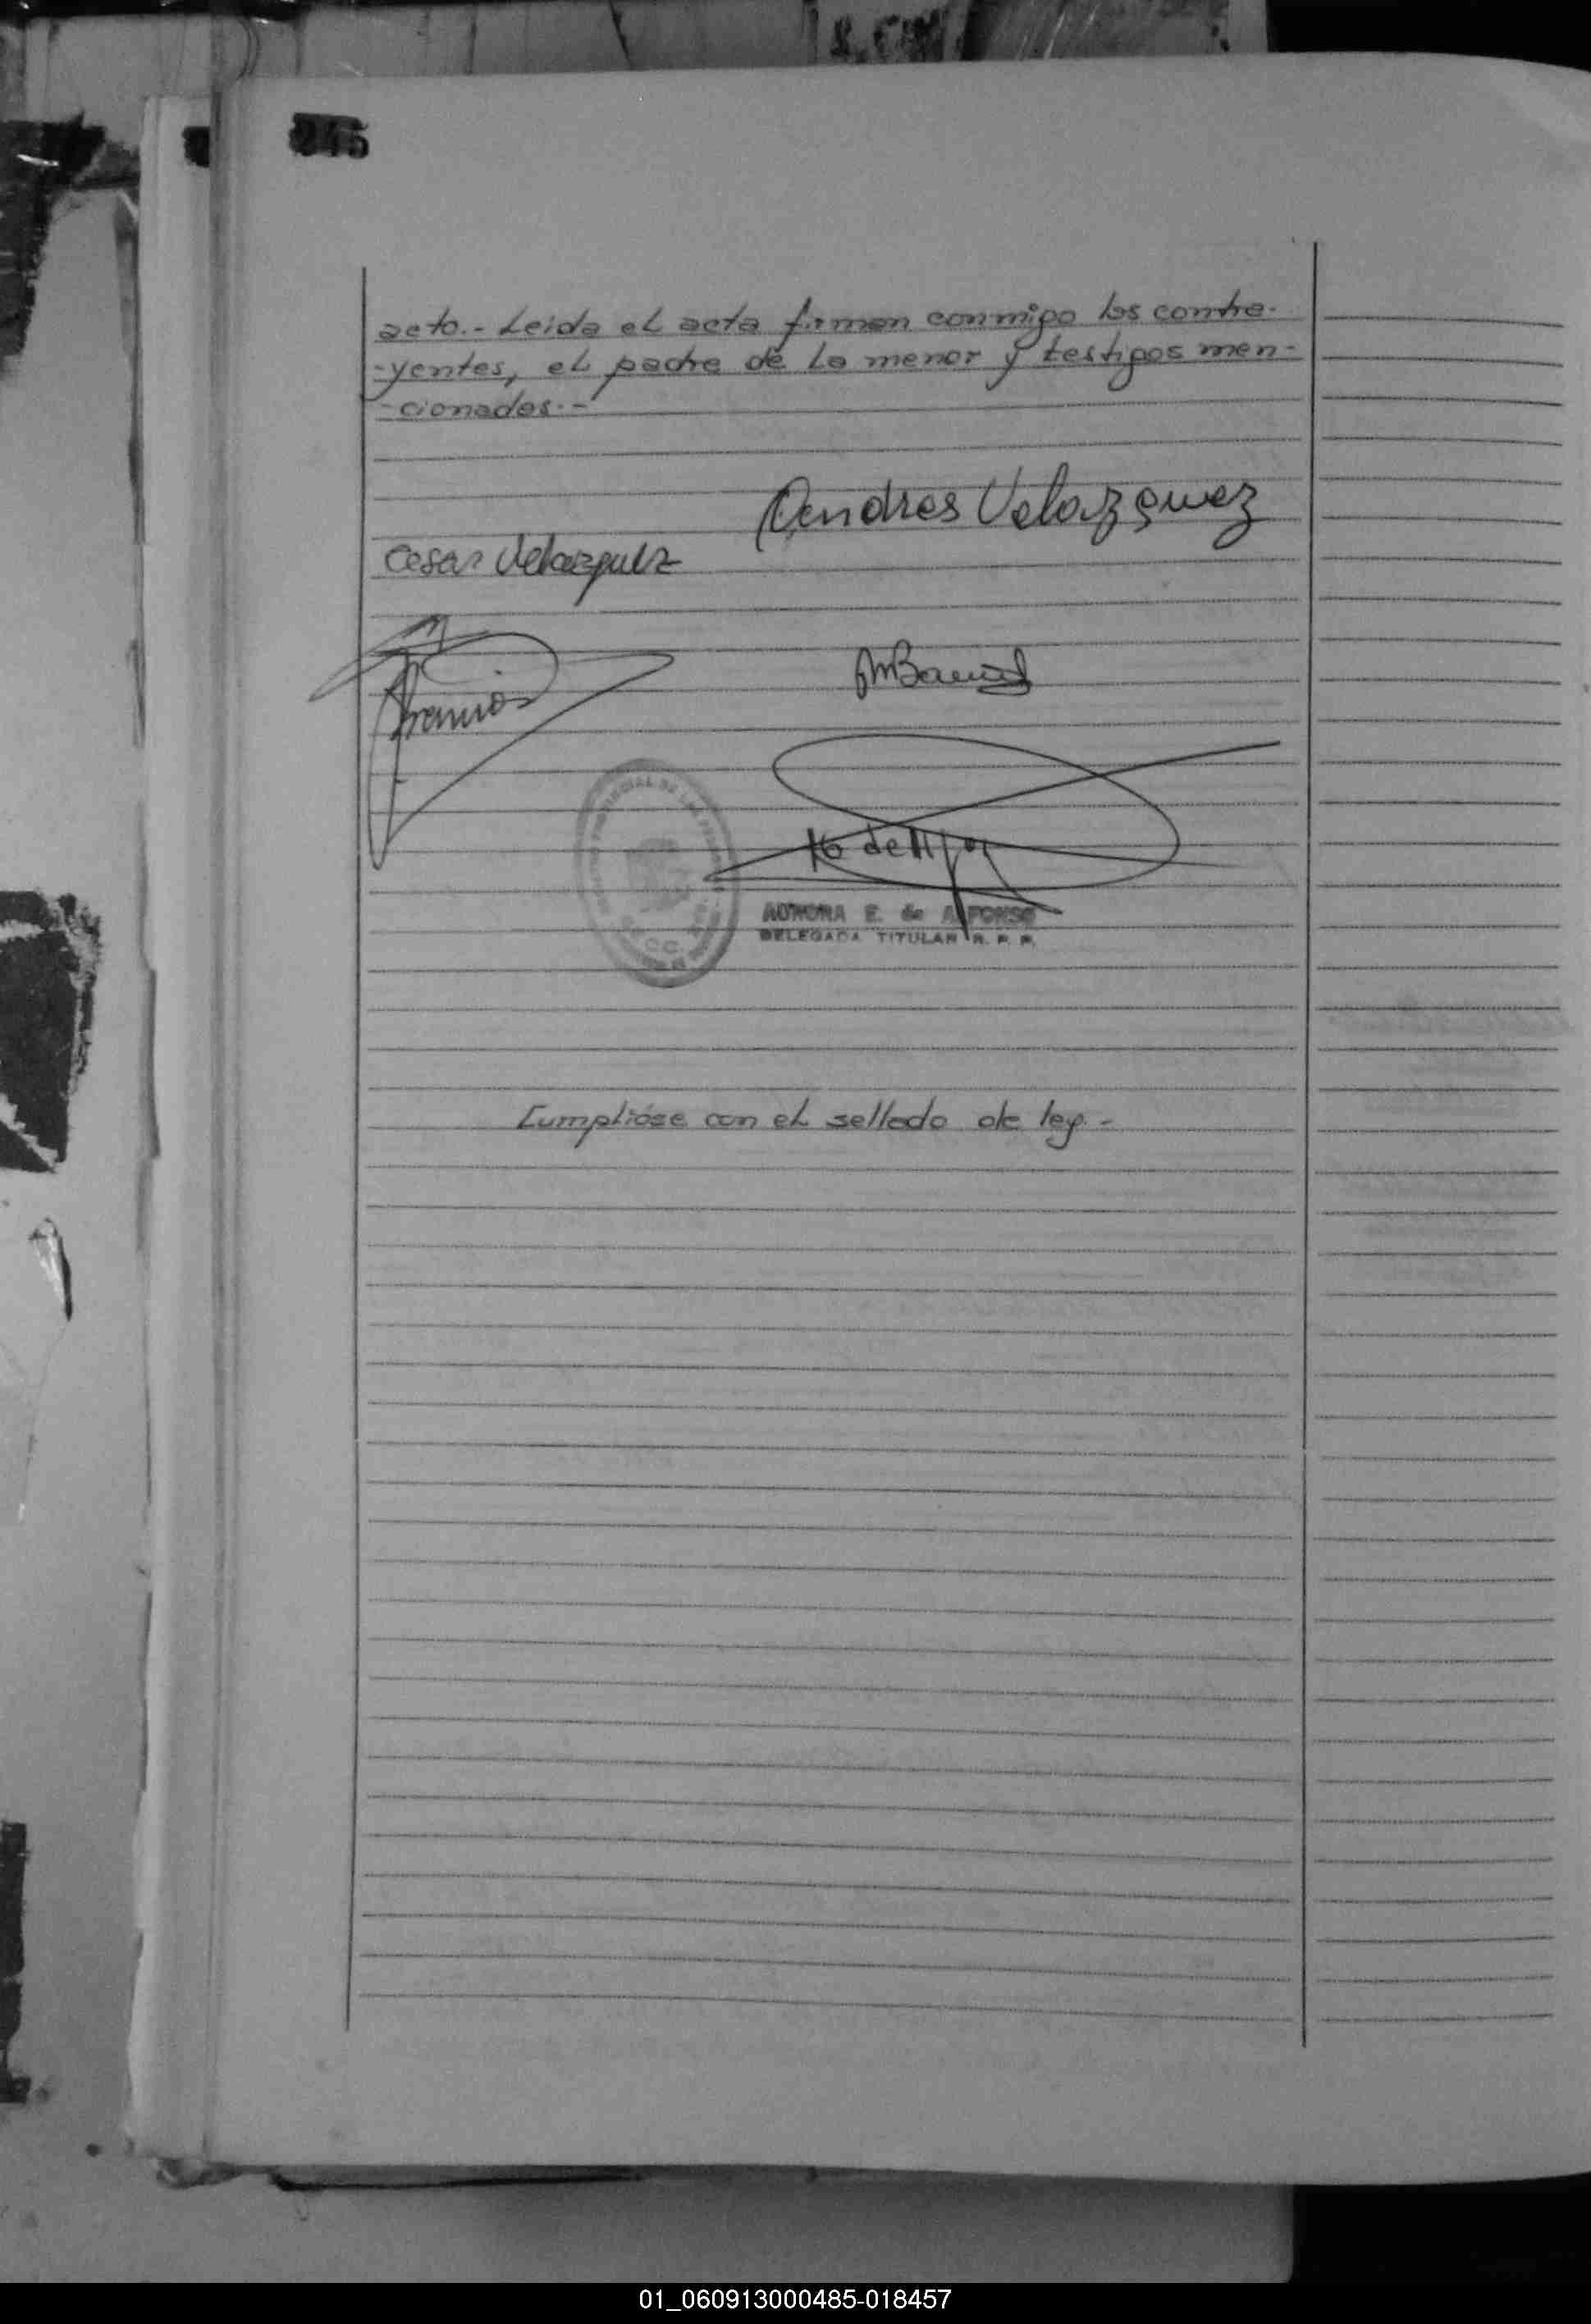 acto.- Leida el acta firman conmigo los contra-
-yentes, el padre de la menor y testigos men-
-cionados.-
Andres Velazquez
Cesar Velazquez
AURORA E. de ALFONSO
DELEGADA TITULAR R. P. P.
Cumplióse con el sellado de ley.-
01_060913000485-018457